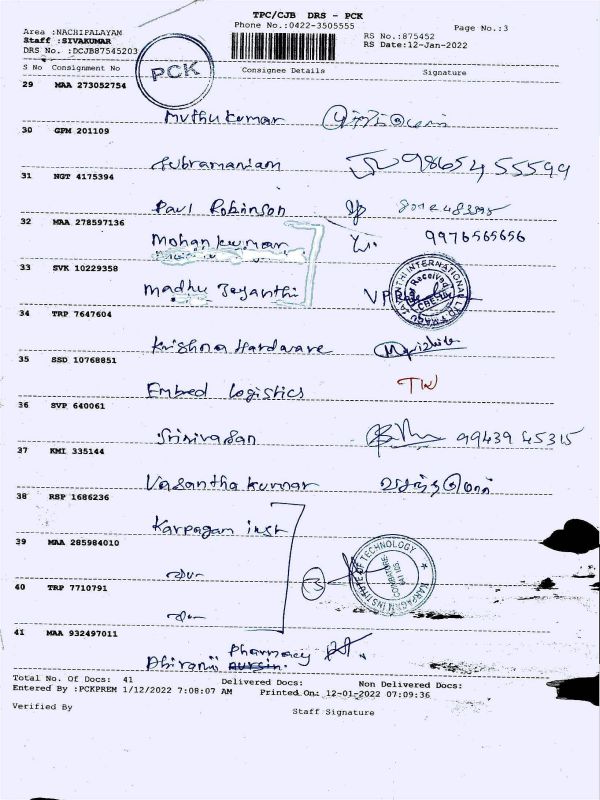 TPC/CJB DRS - PCK
Phone No.:0422-3505555
Page No.:3
Area :NACHIPALAYAM
Staff :SIVAKUMAR
DRS No. :DCJB87545203
RS No.:875452
RS Date:12-Jan-2022
PCK
S No Consignment No Consignee Details Signature
29 MAA 273052754
Muthu kumar
30 GPM 201109
Subramaniam 98654 55599
31 NGT 4175394
Paul Robinson
32 MAA 278597136
Mohan kumar 9976565656
33 SVK 10229358
Madhu Jeyanthi
Received
34 TRP 7647604
Krishna Hardware
35 SSD 10768851
Embed logistics TW
36 SVP 640061
Srinivasan 99439 45315
37 KMI 335144
Vasantha kumar
38 RSP 1686236
Karpagam inst
39 MAA 285984010
KARPAGAM INSTITUTE OF TECHNOLOGY
COIMBATORE
40 TRP 7710791
41 MAA 932497011
Pharmacy
Total No. Of Docs: 41 Delivered Docs: Non Delivered Docs:
Entered By :PCKPREM 1/12/2022 7:08:07 AM Printed On: 12-01-2022 07:09:36
Verified By
Staff Signature